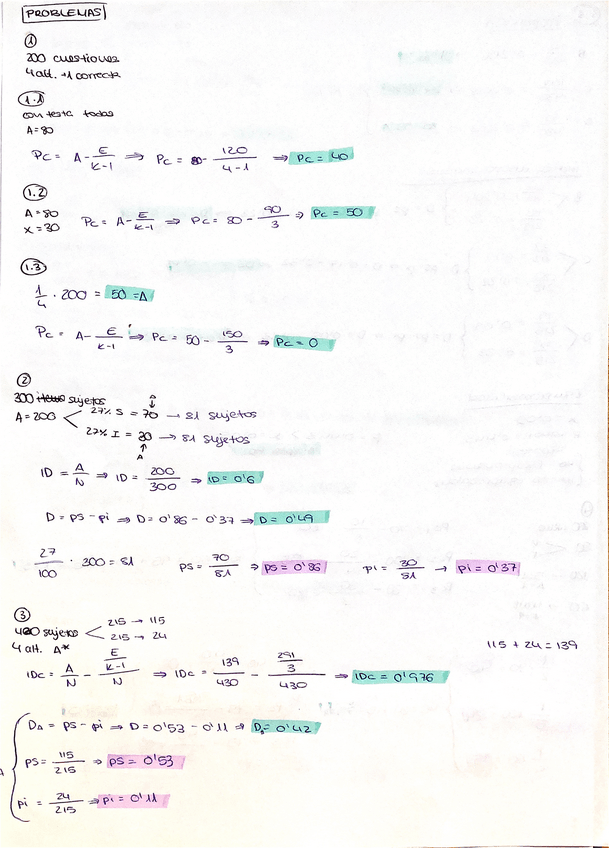 PROBLEMAS
1
200 cuestiones
4 alt. → 1 correcta
1.1
contesta todas
A = 80
Pc = A - E/K-1 ⇒ Pc = 80 - 120/4-1 ⇒ Pc = 40
1.2
A = 80
x = 30
Pc = A - E/K-1 ⇒ Pc = 80 - 90/3 ⇒ Pc = 50
1.3
1/4 · 200 = 50 = A
Pc = A - E/K-1 ⇒ Pc = 50 - 150/3 ⇒ Pc = 0
2
300 sujetos
A = 200
A
27% S = 70 → 81 sujetos
27% I = 30 → 81 sujetos
A
ID = A/N ⇒ ID = 200/300 ⇒ ID = 0'6
D = ps - pi ⇒ D = 0'86 - 0'37 ⇒ D = 0'49
27/100 · 300 = 81 ps = 70/81 ⇒ ps = 0'86 pi = 30/81 → pi = 0'37
3
sujetos
215 → 115
215 → 24
4 alt. A*
115 + 24 = 139
IDc = A/N - E/K-1/N ⇒ IDc = 139/430 - 291/3/430 ⇒ IDc = 0'976
DA = ps - pi ⇒ D = 0'53 - 0'11 ⇒ D = 0'42
ps = 115/215 ⇒ ps = 0'53
pi = 24/215 ⇒ pi = 0'11